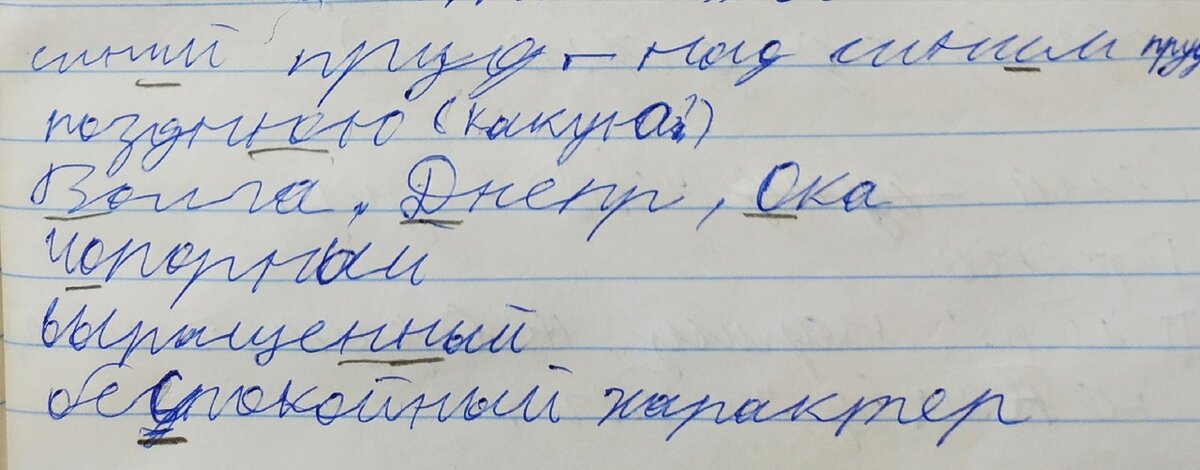 синий пруд - над синим пруд
позднюю (какую?)
Волга, Днепр, Ока
чопорный
выращенный
беспокойный характер